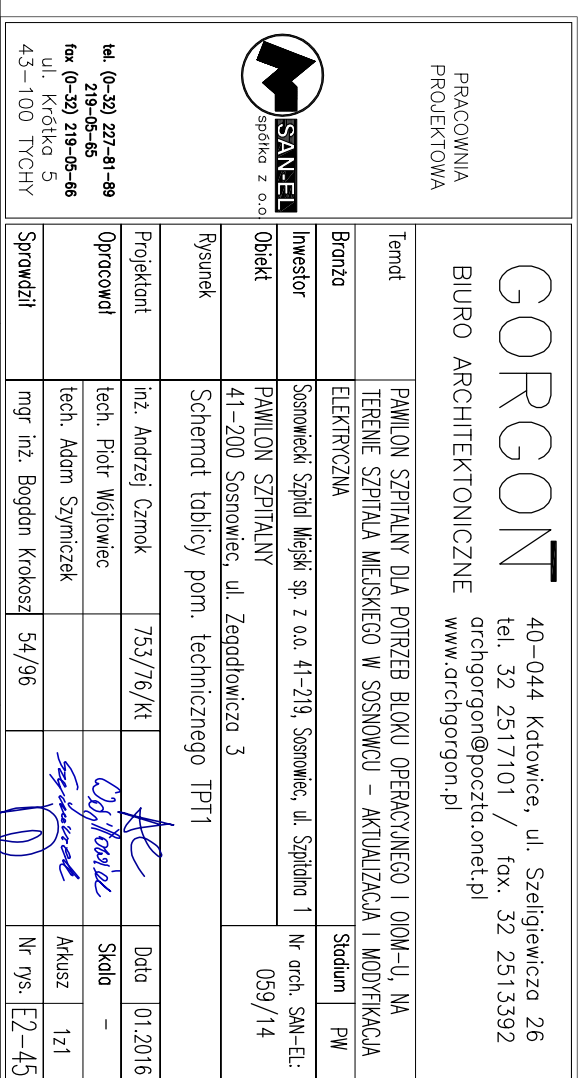 GORGON
BIURO ARCHITEKTONICZNE
40-044 Katowice, ul. Szeligiewicza 26
tel. 32 2517101 / fax. 32 2513392
archgorgon@poczta.onet.pl
www.archgorgon.pl
PRACOWNIA
PROJEKTOWA
SAN-EL
spółka z o.o.
tel. (0-32) 227-81-89
219-05-65
fax (0-32) 219-05-66
ul. Krótka 5
43-100 TYCHY
Temat
PAWILON SZPITALNY DLA POTRZEB BLOKU OPERACYJNEGO I OIOM-U, NA
TERENIE SZPITALA MIEJSKIEGO W SOSNOWCU - AKTUALIZACJA I MODYFIKACJA
Branża ELEKTRYCZNA Stadium PW
Inwestor Sosnowiecki Szpital Miejski sp. z o.o. 41-219, Sosnowiec, ul. Szpitalna 1 Nr arch. SAN-EL:
059/14
Obiekt PAWILON SZPITALNY
41-200 Sosnowiec, ul. Zegadłowicza 3
Rysunek Schemat tablicy pom. technicznego TPT1
Projektant inż. Andrzej Czmok 753/76/Kt Data 01.2016
Opracował tech. Piotr Wójtowiec Wójtowiec Skala -
tech. Adam Szymiczek Arkusz 1z1
Sprawdził mgr inż. Bogdan Krokosz 54/96 Nr rys. E2-45